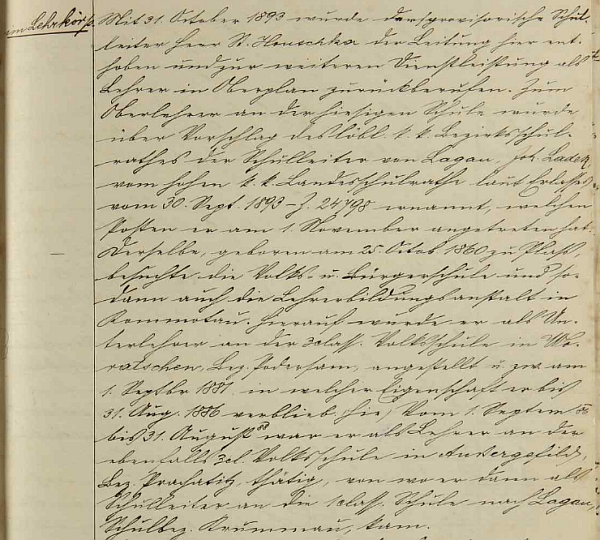 im Lehrkörp.
Mit 31. October 1893 wurde der provisorische Schul-
leiter Herr R. der Leitung hier ent-
hoben und zur weiteren Dienstleistung als
Lehrer in Oberplan zurückberufen. Zum
Oberlehrer an der hiesigen Schule wurde
über Vorschlag des löbl. k. k. Bezirksschul-
rathes der Schulleiter von Lagau, Joh. Ladek
vom hohen k. k. Landesschulrathe laut Erlasses
vom 30. Sept. 1893 Z. 24798 ernannt, welchen
Posten er am 1. November angetreten hat.
Derselbe, geboren am 25. Octob. 1860 zu Plass,
besuchte die Volks- u. Bürgerschule und so-
dann auch die Lehrerbildungsanstalt in
Kommotau. Hierauf wurde er als Un-
terlehrer an der 3class. Volksschule in
Bez. Podersam, angestellt u. zw. am
1. Septbr 1881 in welcher Eigenschaft er bis
31. Aug. 1886 verblieb. Vom 1. Septem 86
bis 31. August war er als Lehrer an der
ebenfalls 3cl. Volksschule in Aussergefild,
Bez. Prachatitz, thätig, von wo er dann als
Schulleiter an die 1class. Schule nach Lagau,
Schulbez. Krummau, kam.